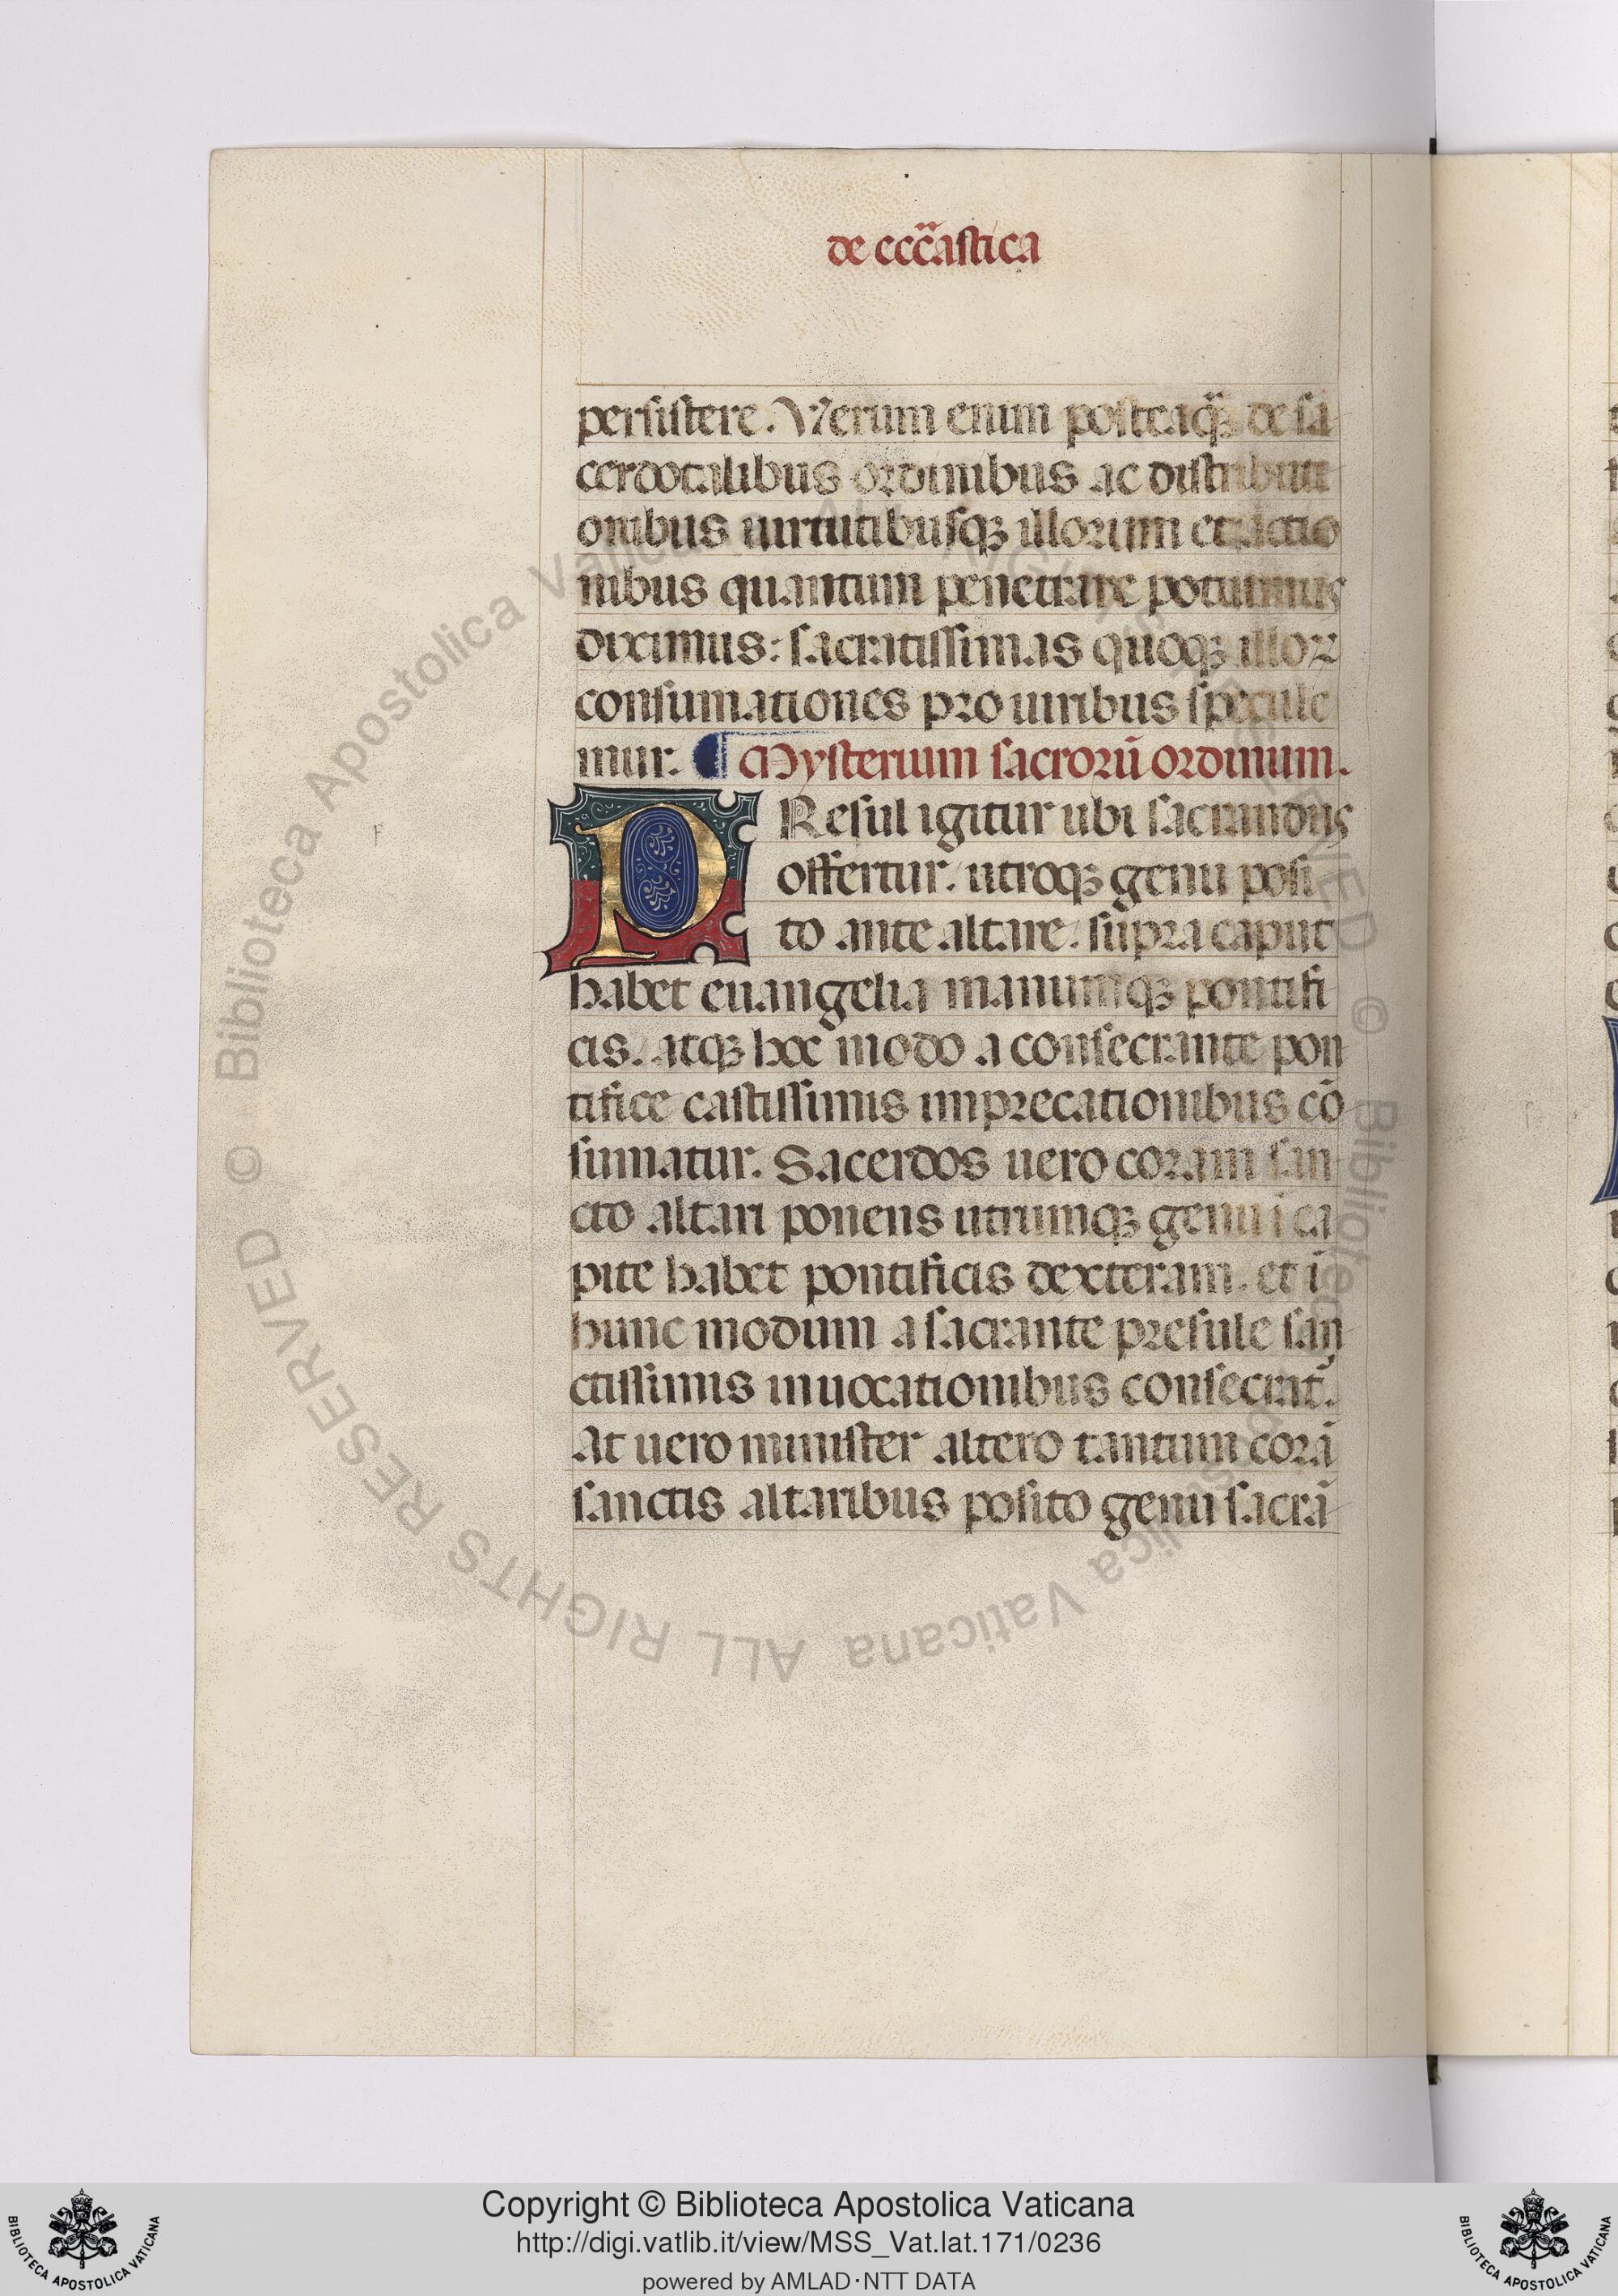 de ecc̃astica
persistere. Verum enim posteaq̃ de sa
cerdotalibus ordinibus ac distributi
onibus uirtutibusqꝫ illorum et actio
nibus quantum penetrare potuimus
diximus: sacratissimas quoqꝫ illoꝝ
consumationes pro uiribus specule
mur. ¶ Mysterium sacrorũ ordinum.
PResul igitur ubi sacrandus
offertur. utroqꝫ genu posi
to ante altare. supra caput
habet euangelia manumqꝫ pontifi
cis. atqꝫ hoc modo a consecrante pon
tifice castissimis imprecationibus cõ
sumatur. Sacerdos uero coram san
cto altari ponens utrumqꝫ genu ĩ ca
pite habet pontificis dexteram. et ĩ
hunc modum a sacrante presule san
ctissimis inuocationibus consecrat̃.
At uero minister altero tantum corã
sanctis altaribus posito genu sacrã
© Biblioteca Apostolica Vaticana ALL RIGHTS RESERVED © Biblioteca Apostolica Vaticana ALL RIGHTS RESERVED
Copyright © Biblioteca Apostolica Vaticana
http://digi.vatlib.it/view/MSS_Vat.lat.171/0236
powered by AMLAD·NTT DATA
BIBLIOTECA APOSTOLICA VATICANA
BIBLIOTECA APOSTOLICA VATICANA